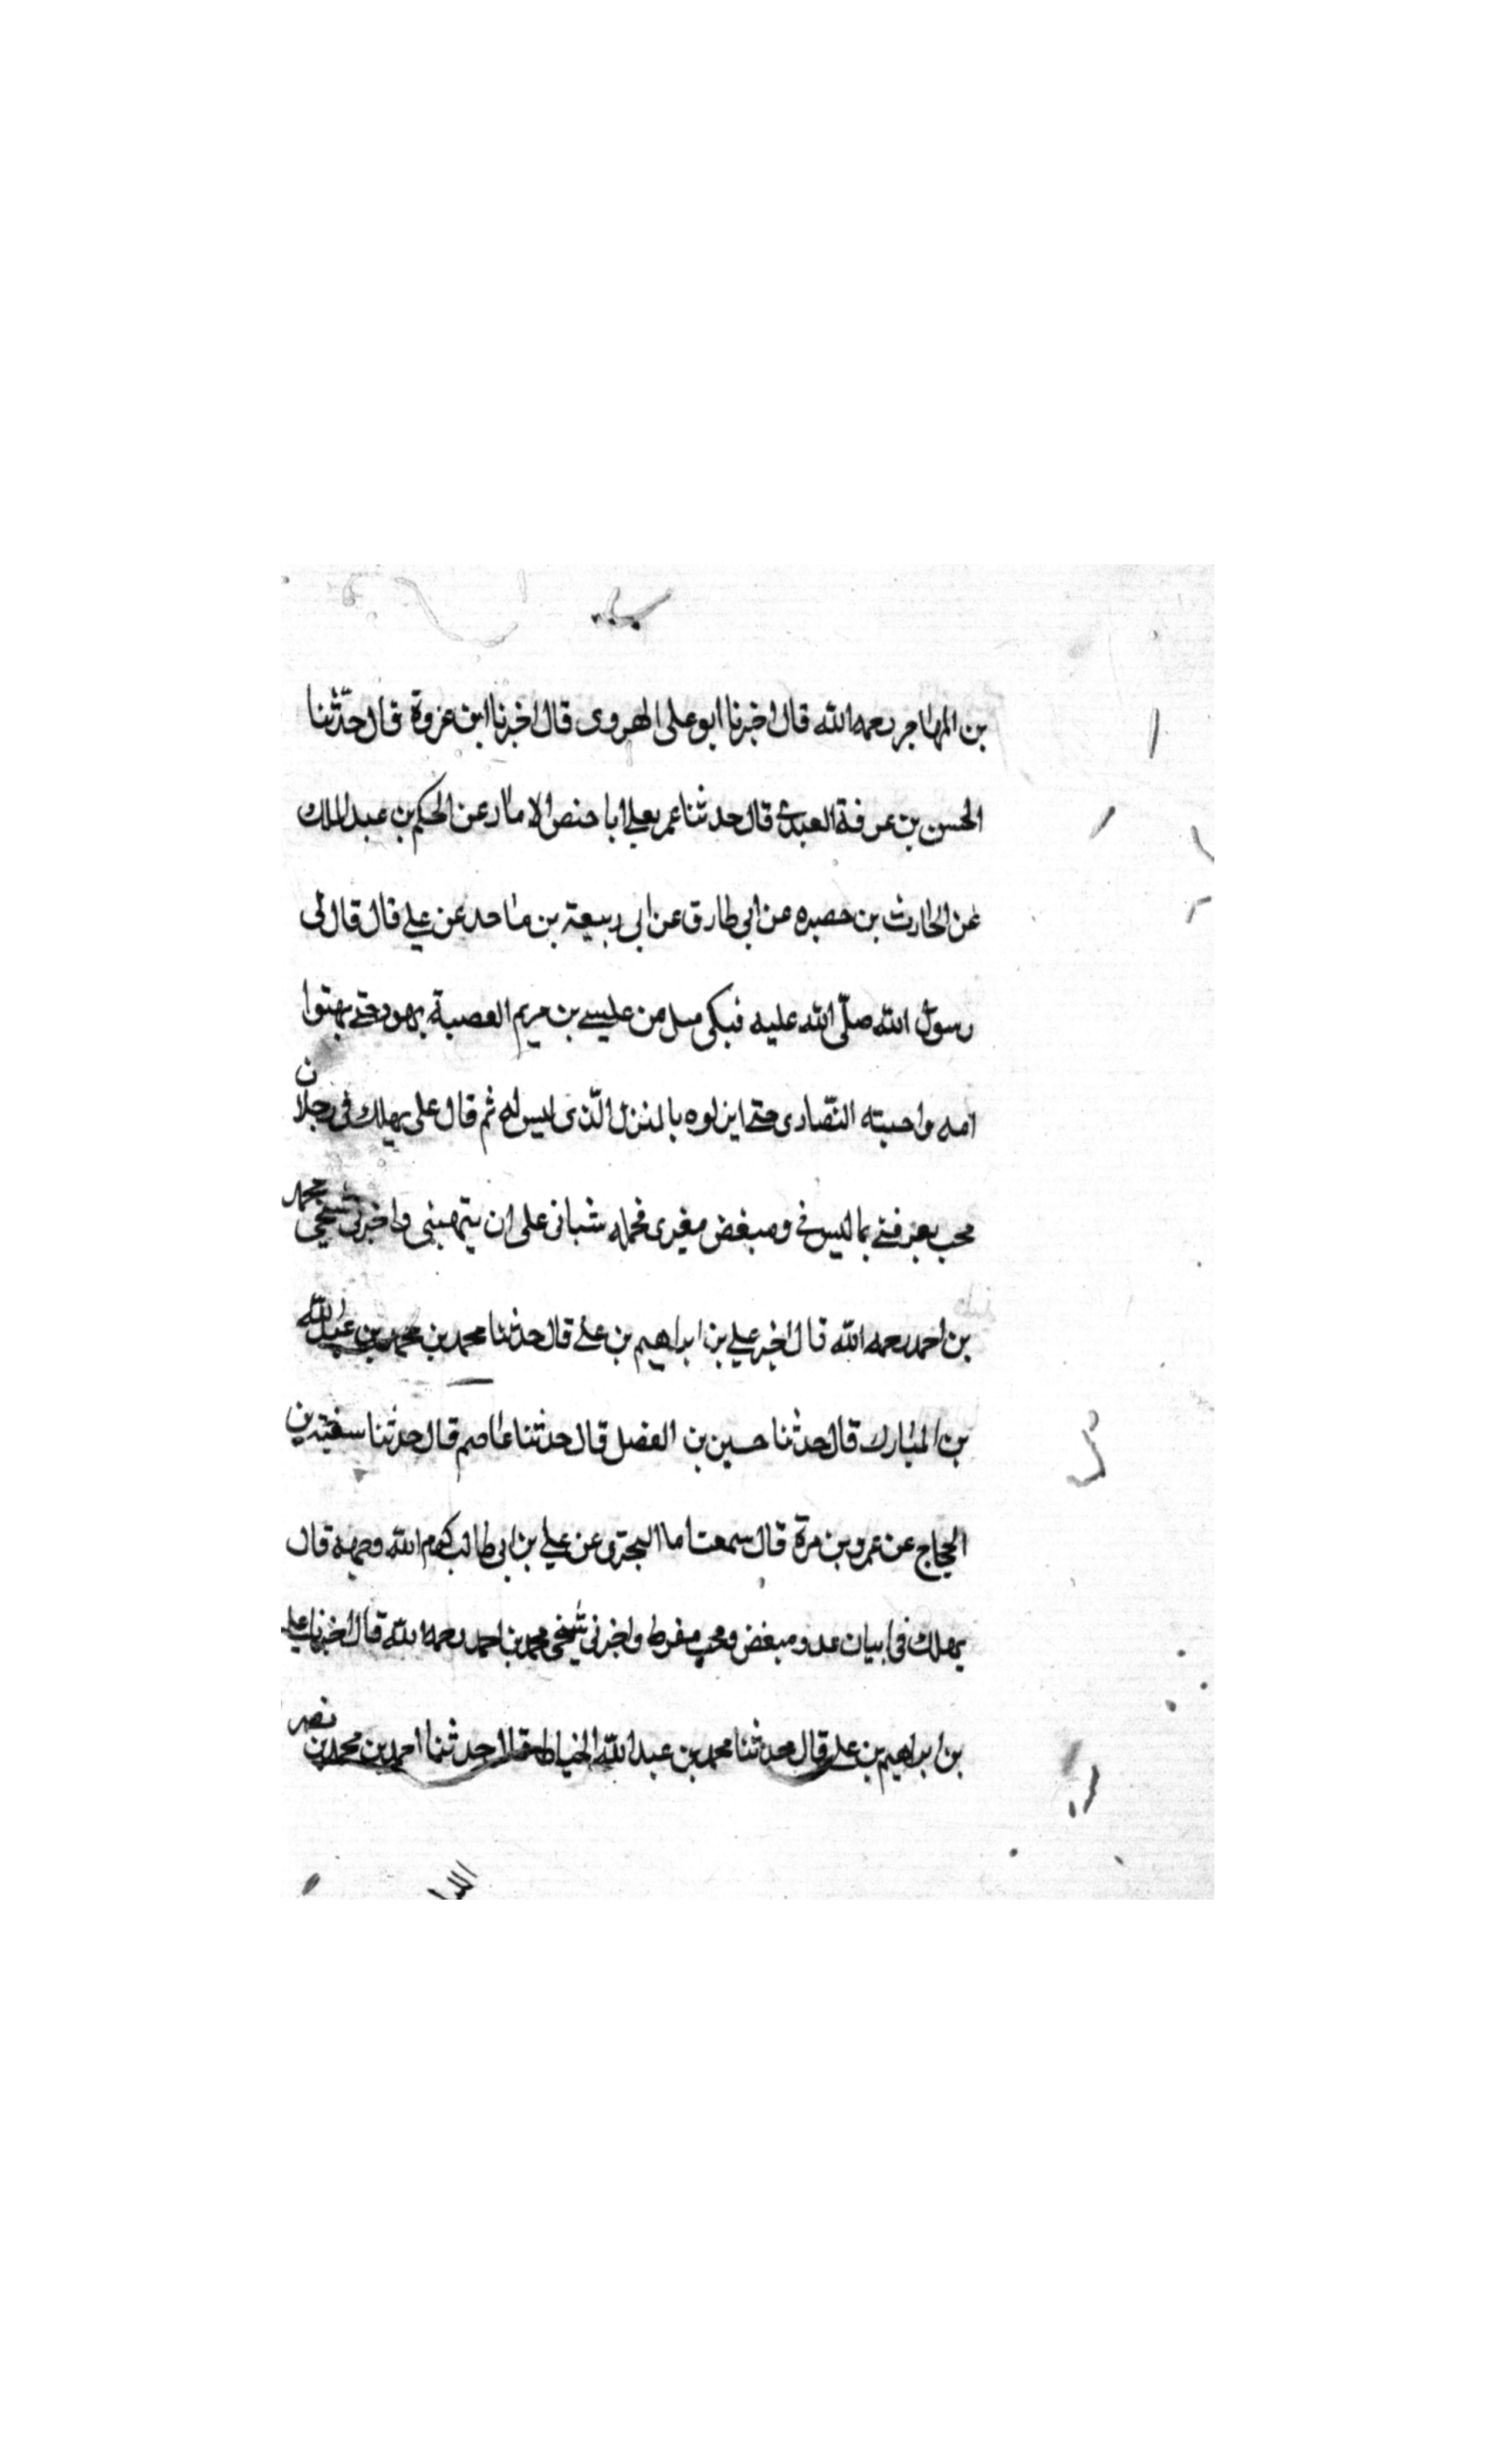 بن المهاجر رحمه الله قال اخبرنا ابو على الهروى قال اخبرنا ابن عزوة قال حدّثنا
الحسن بن عرفة العبدى قال حدثنا عمر يعلى ابا حنص الامار عن الحكم بن عبد الملك
عن الحارث بن حصيره عن ابى طارق عن ابى ربيعة بن ماحد عن على قال قال لى
رسول الله صلّى الله عليه فبكى مىل من عليسے بن مريم العصبة يهود حتى بهتوا
امه واحبته النّصارى حتى اىزلوه بالمنزل الّذى ليس له ثم قال على يهلك فى رجلان
محب بما ليس فى ومبغض مفترى فحمله شبانى على ان يتهبنى واخبرنى شيخى محمد
بن احمد رحمه الله قال اخبر على بن ابراهيم بن على قال حدثنا محمد بن محمد بن عبد الله
بن المبارك قال حدثنا حسين بن الفضل قال حدثنا عاصم قال حدثنا بن
الحجاج عن عمرو بن مرة قال سمعت البحترى عن على بن ابى طالب كرم الله وجهه قال
يهلك فى ابيان عدو مبغض ومحب مفرط واخبرنى شيخى محمد بن احمد رحمه الله قال اخبرنا على
بن ابراهيم بن على قال حدثنا محمد بن عبد الله الخياط قال حدثنا احمد بن محمد بن نصر